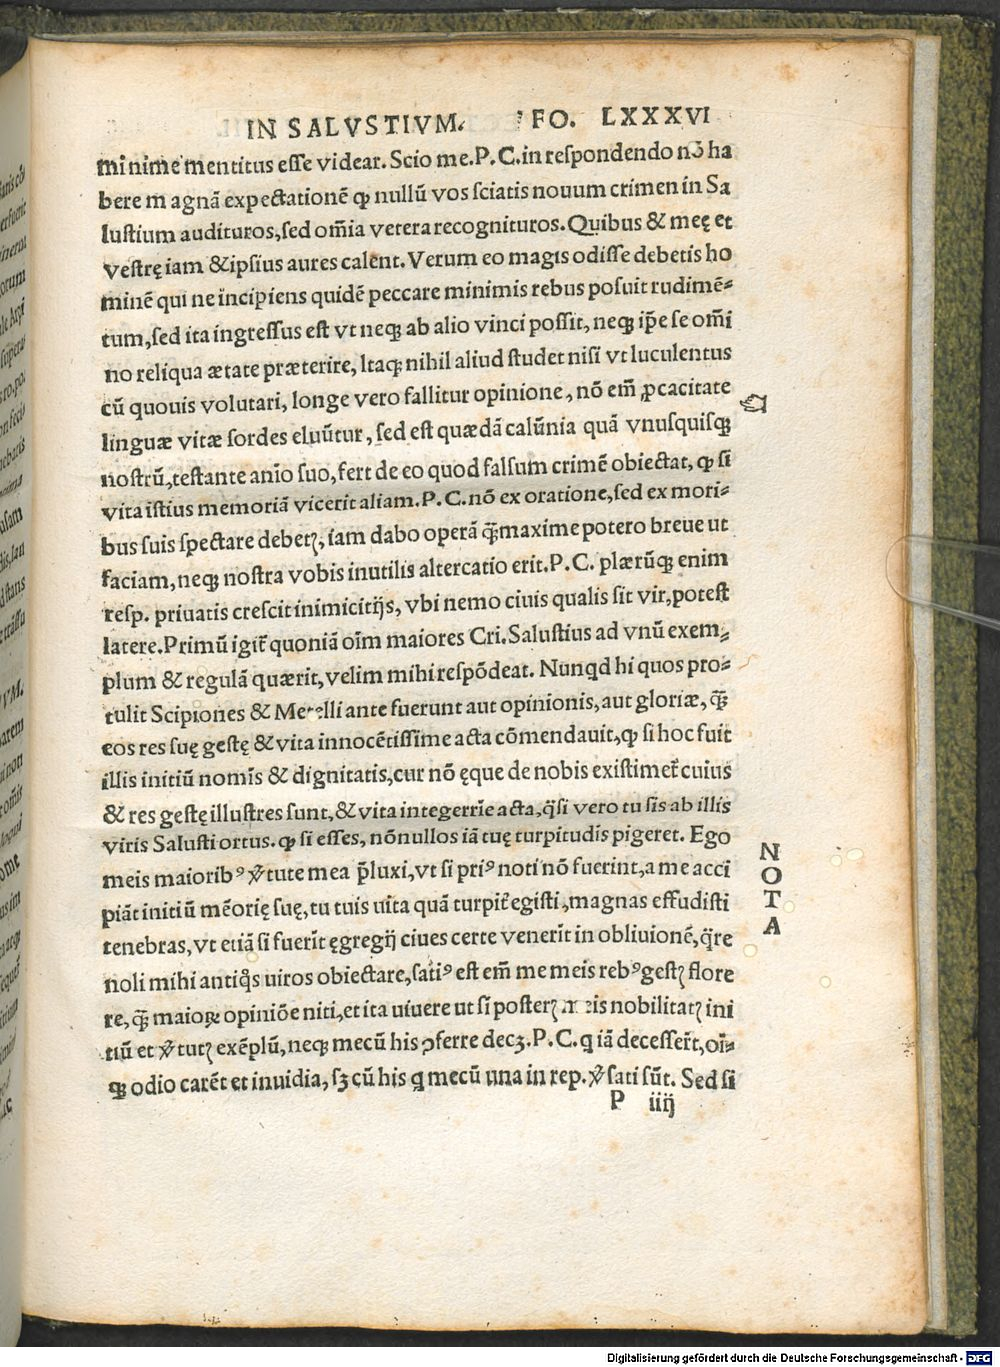 IN SALVSTIVM. FO. LXXXVI
minime mentitus esse videar. Scio me.P.C.in respondendo nō ha
bere magnā expectationē ꝙ nullū vos sciatis nouum crimen in Sa
lustium audituros,sed om̄ia vetera recognituros.Quibus & meę et
vestrę iam &ipsius aures calent.Verum eo magis odisse debetis ho
minē qui ne incipiens quidē peccare minimis rebus posuit rudimē⸗
tum,sed ita ingressus est vt neqꝫ ab alio vinci possit,neqꝫ ip̄e se om̄i
no reliqua ætate præterire, Itaqꝫ nihil aliud studet nisi vt luculentus
cū quouis volutari, longe vero fallitur opinione, nō em̄ ꝓcacitate
linguæ vitæ sordes eluūtur, sed est quædā calūnia quā vnusquisqꝫ
nostrū,testante anīo suo,fert de eo quod falsum crimē obiectat,ꝙ si
vita istius memoriā vicerit aliam.P.C.nō ex oratione,sed ex mori⸗
bus suis spectare debetꝭ, iam dabo operā q̄ꝫmaxime potero breue ut
faciam,neqꝫ nostra vobis inutilis altercatio erit.P.C. plærūqꝫ enim
resp. priuatis crescit inimicitijs, vbi nemo ciuis qualis sit vir,potest
latere.Primū igit̄ quoniā oīm maiores Cri.Salustius ad vnū exem⸗
plum & regulā quærit,velim mihi respōdeat. Nunqd hi quos pro⸗
tulit Scipiones & Metelli ante fuerunt aut opinionis,aut gloriæ,q̄ꝫ
eos res suę gestę & vita innocētissime acta cōmendauit,ꝙ si hoc fuit
illis initiū nomīs & dignitatis,cur nō ęque de nobis existimet̄ cuius
& res gestę illustres sunt,& vita integerrīe acta,q̄si vero tu sis ab illis
viris Salusti ortus.ꝙ si esses, nōnullos iā tuę turpitudis pigeret. Ego
meis maioribꝰ v̄tute mea p̄luxi,vt si priꝰ noti nō fuerint,a me acci
piāt initiū mēorię suę,tu tuis uita quā turpit̄ egisti,magnas effudisti
tenebras,vt etiā si fuerīt ęgregij ciues certe venerīt in obliuionē,q̄re
noli mihi antiq̊s uiros obiectare,satiꝰ est em̄ me meis rebꝰgestꝭ flore
re,q̄ꝫ maioꝝ opiniōe niti,et ita uiuere ut si posterꝭ meis nobilitatꝭ ini
tiū et v̄tutꝭ exēplū,neqꝫ mecū his ꝯferre decꝫ.P.C.q iā decesser̄t,oī⸗
qꝫ odio carēt et inuidia, sꝫ cū his q mecū una in rep. v̄sati sūt. Sed si
P iiij
N
O
T
A
Digitalisierung gefördert durch die Deutsche Forschungsgemeinschaft - DFG